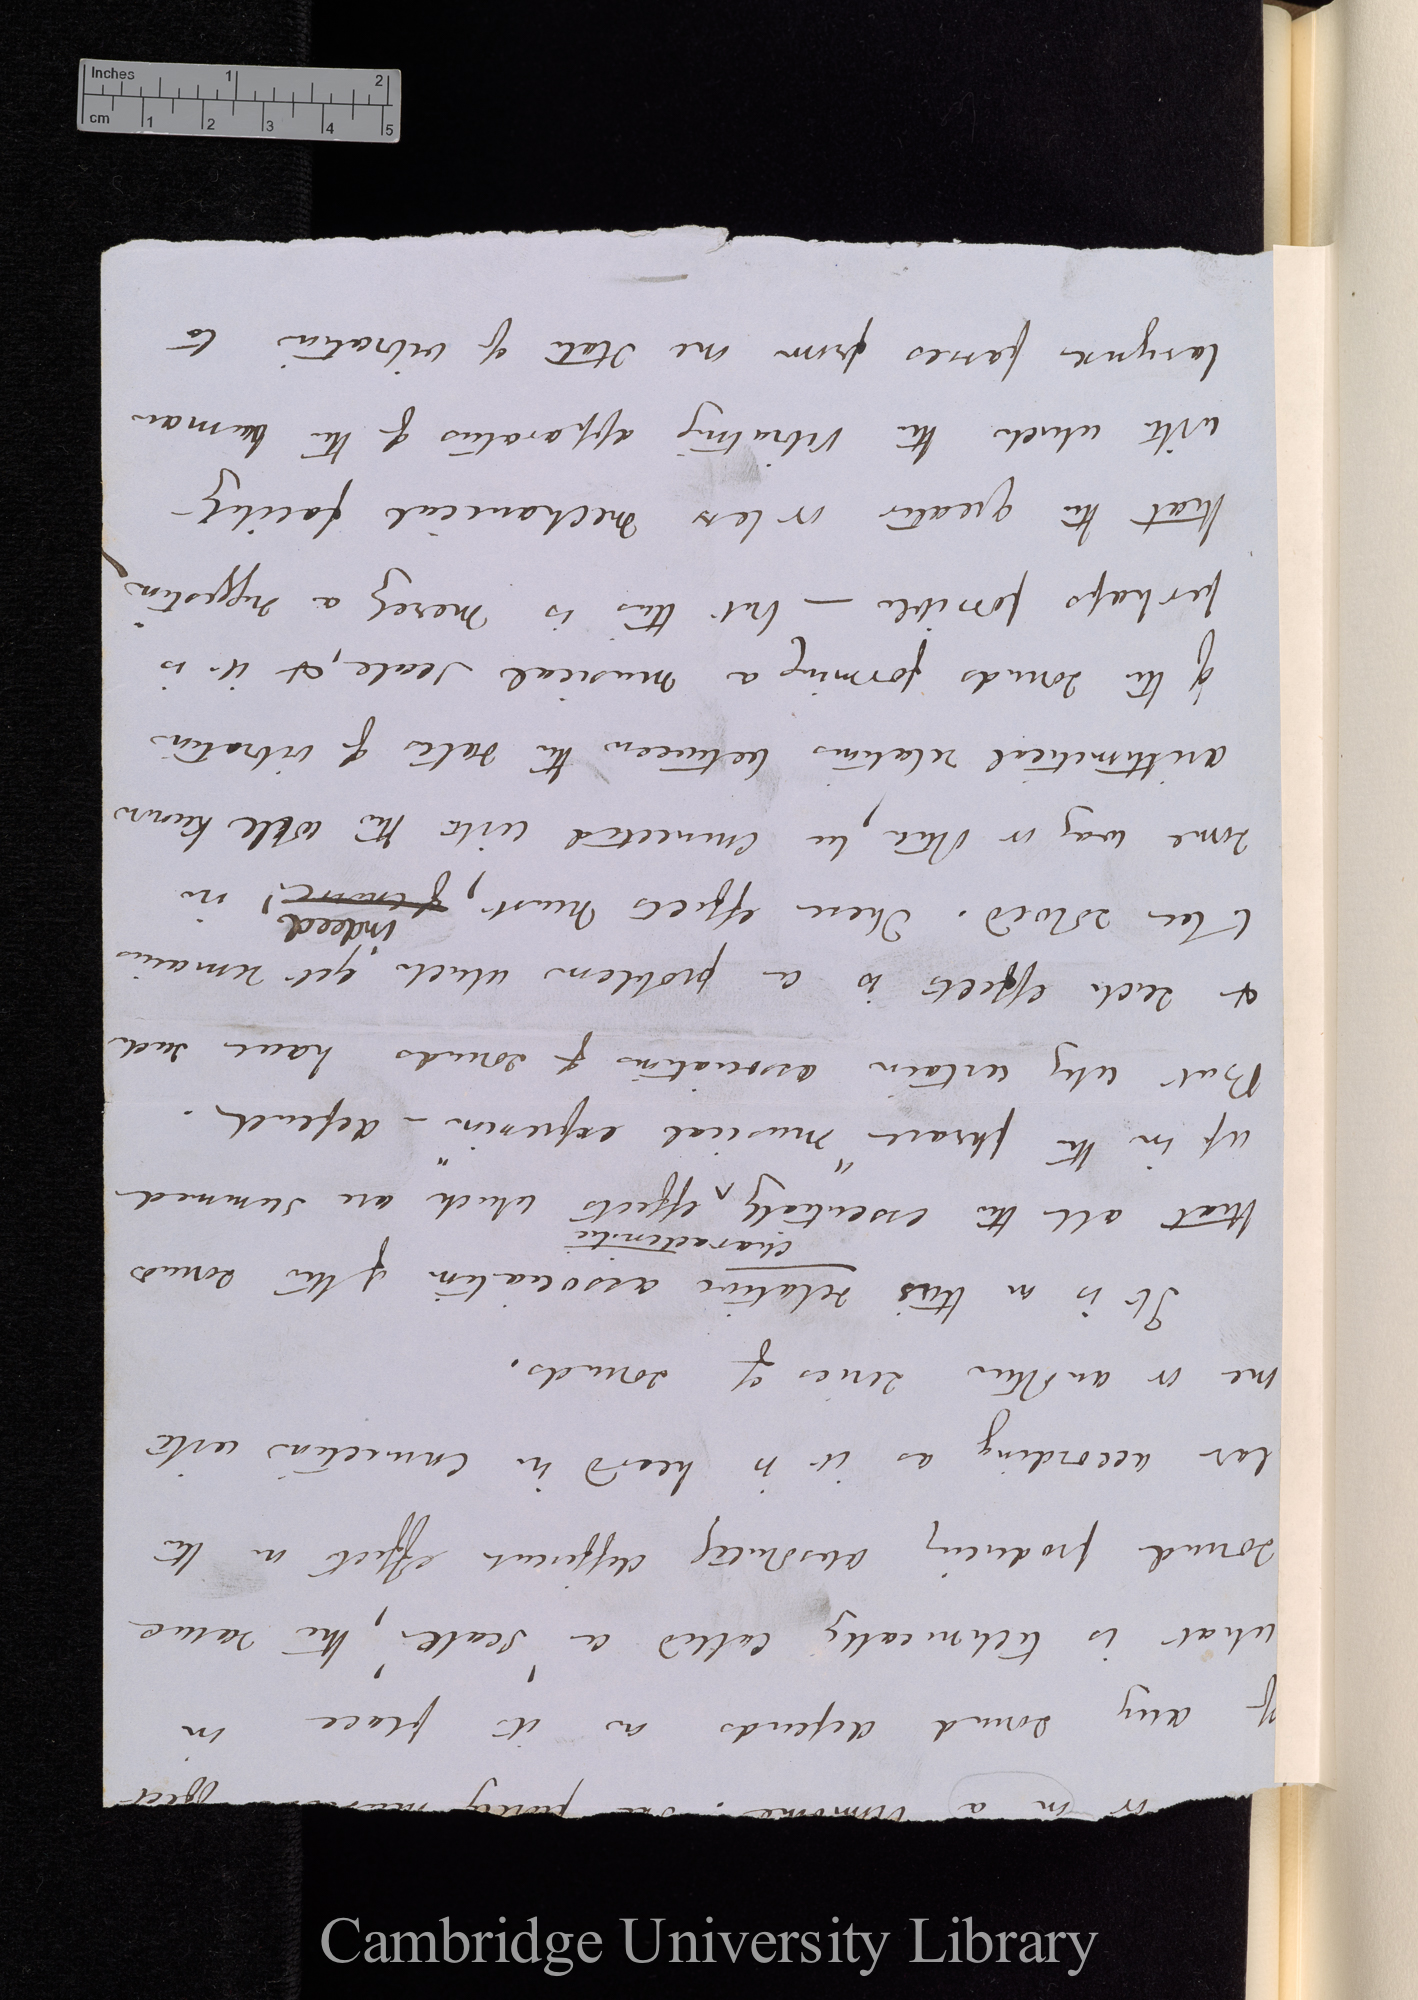 Inches 1 2
cm 1 2 3 4 5
or in a The purely musical effect
of any sound depends on its place in
what is technically called a 'scale', the same
sound producing absolutely different effect on the
ear according as it is heard in connection with
one or another series of sounds.
It is on this relative association of the sounds
characteristic
that all the essentially ^ effects which are summed
up in the phrase "musical expression" – depend.
But why certain associations of sounds have such
& such effects is a problem which yet remains
indeed
to be solved. These effects must, of course, in
some way or other, be connected with the well known
arithmetical relations between the rates of vibration
of the sounds forming a musical scale, & it is
perhaps possible — but this is merely a suggestion
that the greater or less mechanical facility
with which the vibrating apparatus of the human
larynx passes from one state of vibration to
Cambridge University Library